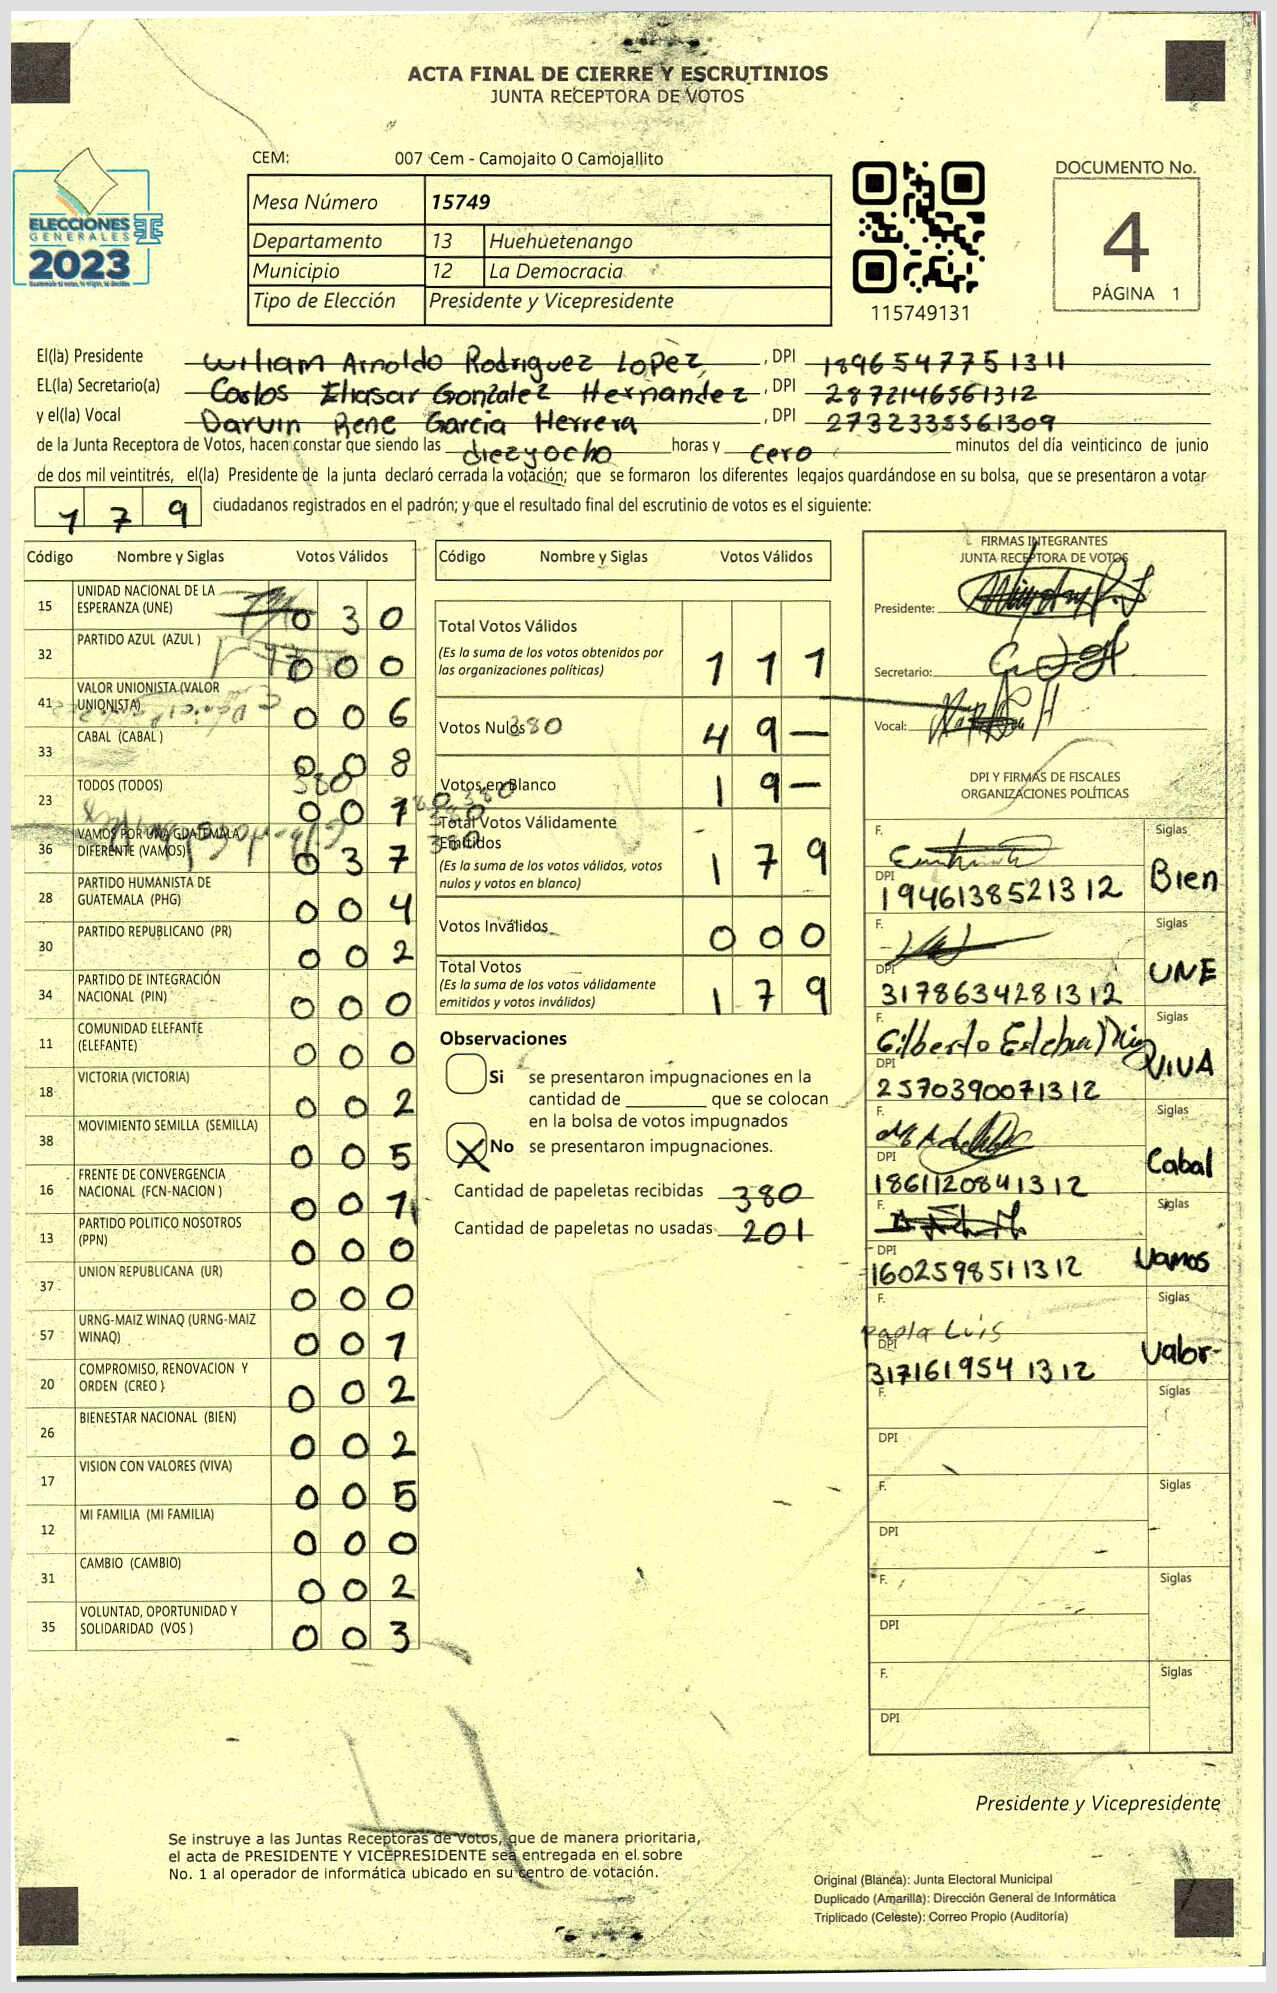 ACTA FINAL DE CIERRE Y ESCRUTINIOS
JUNTA RECEPTORA DE VOTOS
CEM: 007 Cem - Camojaito O Camojallito
ELECCIONES
GENERALES
2023
Mesa Número 15749
Departamento 13 Huehuetenango
Municipio 12 La Democracia
Tipo de Elección Presidente y Vicepresidente
115749131
DOCUMENTO No.
4
PÁGINA 1
El(la) Presidente Wiliam Arnoldo Rodriguez Lopez, , DPI 1896547751311
EL(la) Secretario(a) Carlos Eliasar Gonzalez Hernandez , DPI 2872146561312
y el(la) Vocal Darvin Rene Garcia Herrera , DPI 2732335561309
de la Junta Receptora de Votos, hacen constar que siendo las diezyocho horas y cero minutos del día veinticinco de junio
de dos mil veintitrés, el(la) Presidente de la junta declaró cerrada la votación; que se formaron los diferentes legajos guardándose en su bolsa, que se presentaron a votar
179 ciudadanos registrados en el padrón; y que el resultado final del escrutinio de votos es el siguiente:
Código Nombre y Siglas Votos Válidos
15 UNIDAD NACIONAL DE LA ESPERANZA (UNE) 030
32 PARTIDO AZUL (AZUL ) 000
41 VALOR UNIONISTA (VALOR UNIONISTA) 006
33 CABAL (CABAL ) 008
23 TODOS (TODOS) 001
36 VAMOS POR UNA GUATEMALA DIFERENTE (VAMOS) 037
28 PARTIDO HUMANISTA DE GUATEMALA (PHG) 004
30 PARTIDO REPUBLICANO (PR) 002
34 PARTIDO DE INTEGRACIÓN NACIONAL (PIN) 000
11 COMUNIDAD ELEFANTE (ELEFANTE) 000
18 VICTORIA (VICTORIA) 002
38 MOVIMIENTO SEMILLA (SEMILLA) 005
16 FRENTE DE CONVERGENCIA NACIONAL (FCN-NACION ) 001
13 PARTIDO POLITICO NOSOTROS (PPN) 000
37 UNION REPUBLICANA (UR) 000
57 URNG-MAIZ WINAQ (URNG-MAIZ WINAQ) 001
20 COMPROMISO, RENOVACION Y ORDEN (CREO ) 002
26 BIENESTAR NACIONAL (BIEN) 002
17 VISION CON VALORES (VIVA) 005
12 MI FAMILIA (MI FAMILIA) 000
31 CAMBIO (CAMBIO) 002
35 VOLUNTAD, OPORTUNIDAD Y SOLIDARIDAD (VOS ) 003
Código Nombre y Siglas Votos Válidos
Total Votos Válidos
(Es la suma de los votos obtenidos por
las organizaciones políticas) 111
Votos Nulos 380 49-
Votos en Blanco 19-
Total Votos Válidamente
Emitidos
(Es la suma de los votos válidos, votos
nulos y votos en blanco) 179
Votos Inválidos 000
Total Votos
(Es la suma de los votos válidamente
emitidos y votos inválidos) 179
Observaciones
Si se presentaron impugnaciones en la
cantidad de ________ que se colocan
en la bolsa de votos impugnados
X No se presentaron impugnaciones.
Cantidad de papeletas recibidas 380
Cantidad de papeletas no usadas 201
FIRMAS INTEGRANTES
JUNTA RECEPTORA DE VOTOS
Presidente:
Secretario:
Vocal:
DPI Y FIRMAS DE FISCALES
ORGANIZACIONES POLÍTICAS
F. Siglas
DPI 1946138521312 Bien
F. Siglas
DPI 3178634281312 UNE
F. Gilberto Esteban Siglas
DPI 2570390071312 VIVA
F. Siglas
DPI 1861120841312 Cabal
F. Siglas
DPI 1602598511312 Vamos
F. Luis Siglas
DPI 3171619541312 Valor-
F. Siglas
DPI
F. Siglas
DPI
F. Siglas
DPI
F. Siglas
DPI
Presidente y Vicepresidente
Se instruye a las Juntas Receptoras de Votos, que de manera prioritaria,
el acta de PRESIDENTE Y VICEPRESIDENTE sea entregada en el sobre
No. 1 al operador de informática ubicado en su centro de votación.
Original (Blanca): Junta Electoral Municipal
Duplicado (Amarilla): Dirección General de Informática
Triplicado (Celeste): Correo Propio (Auditoría)